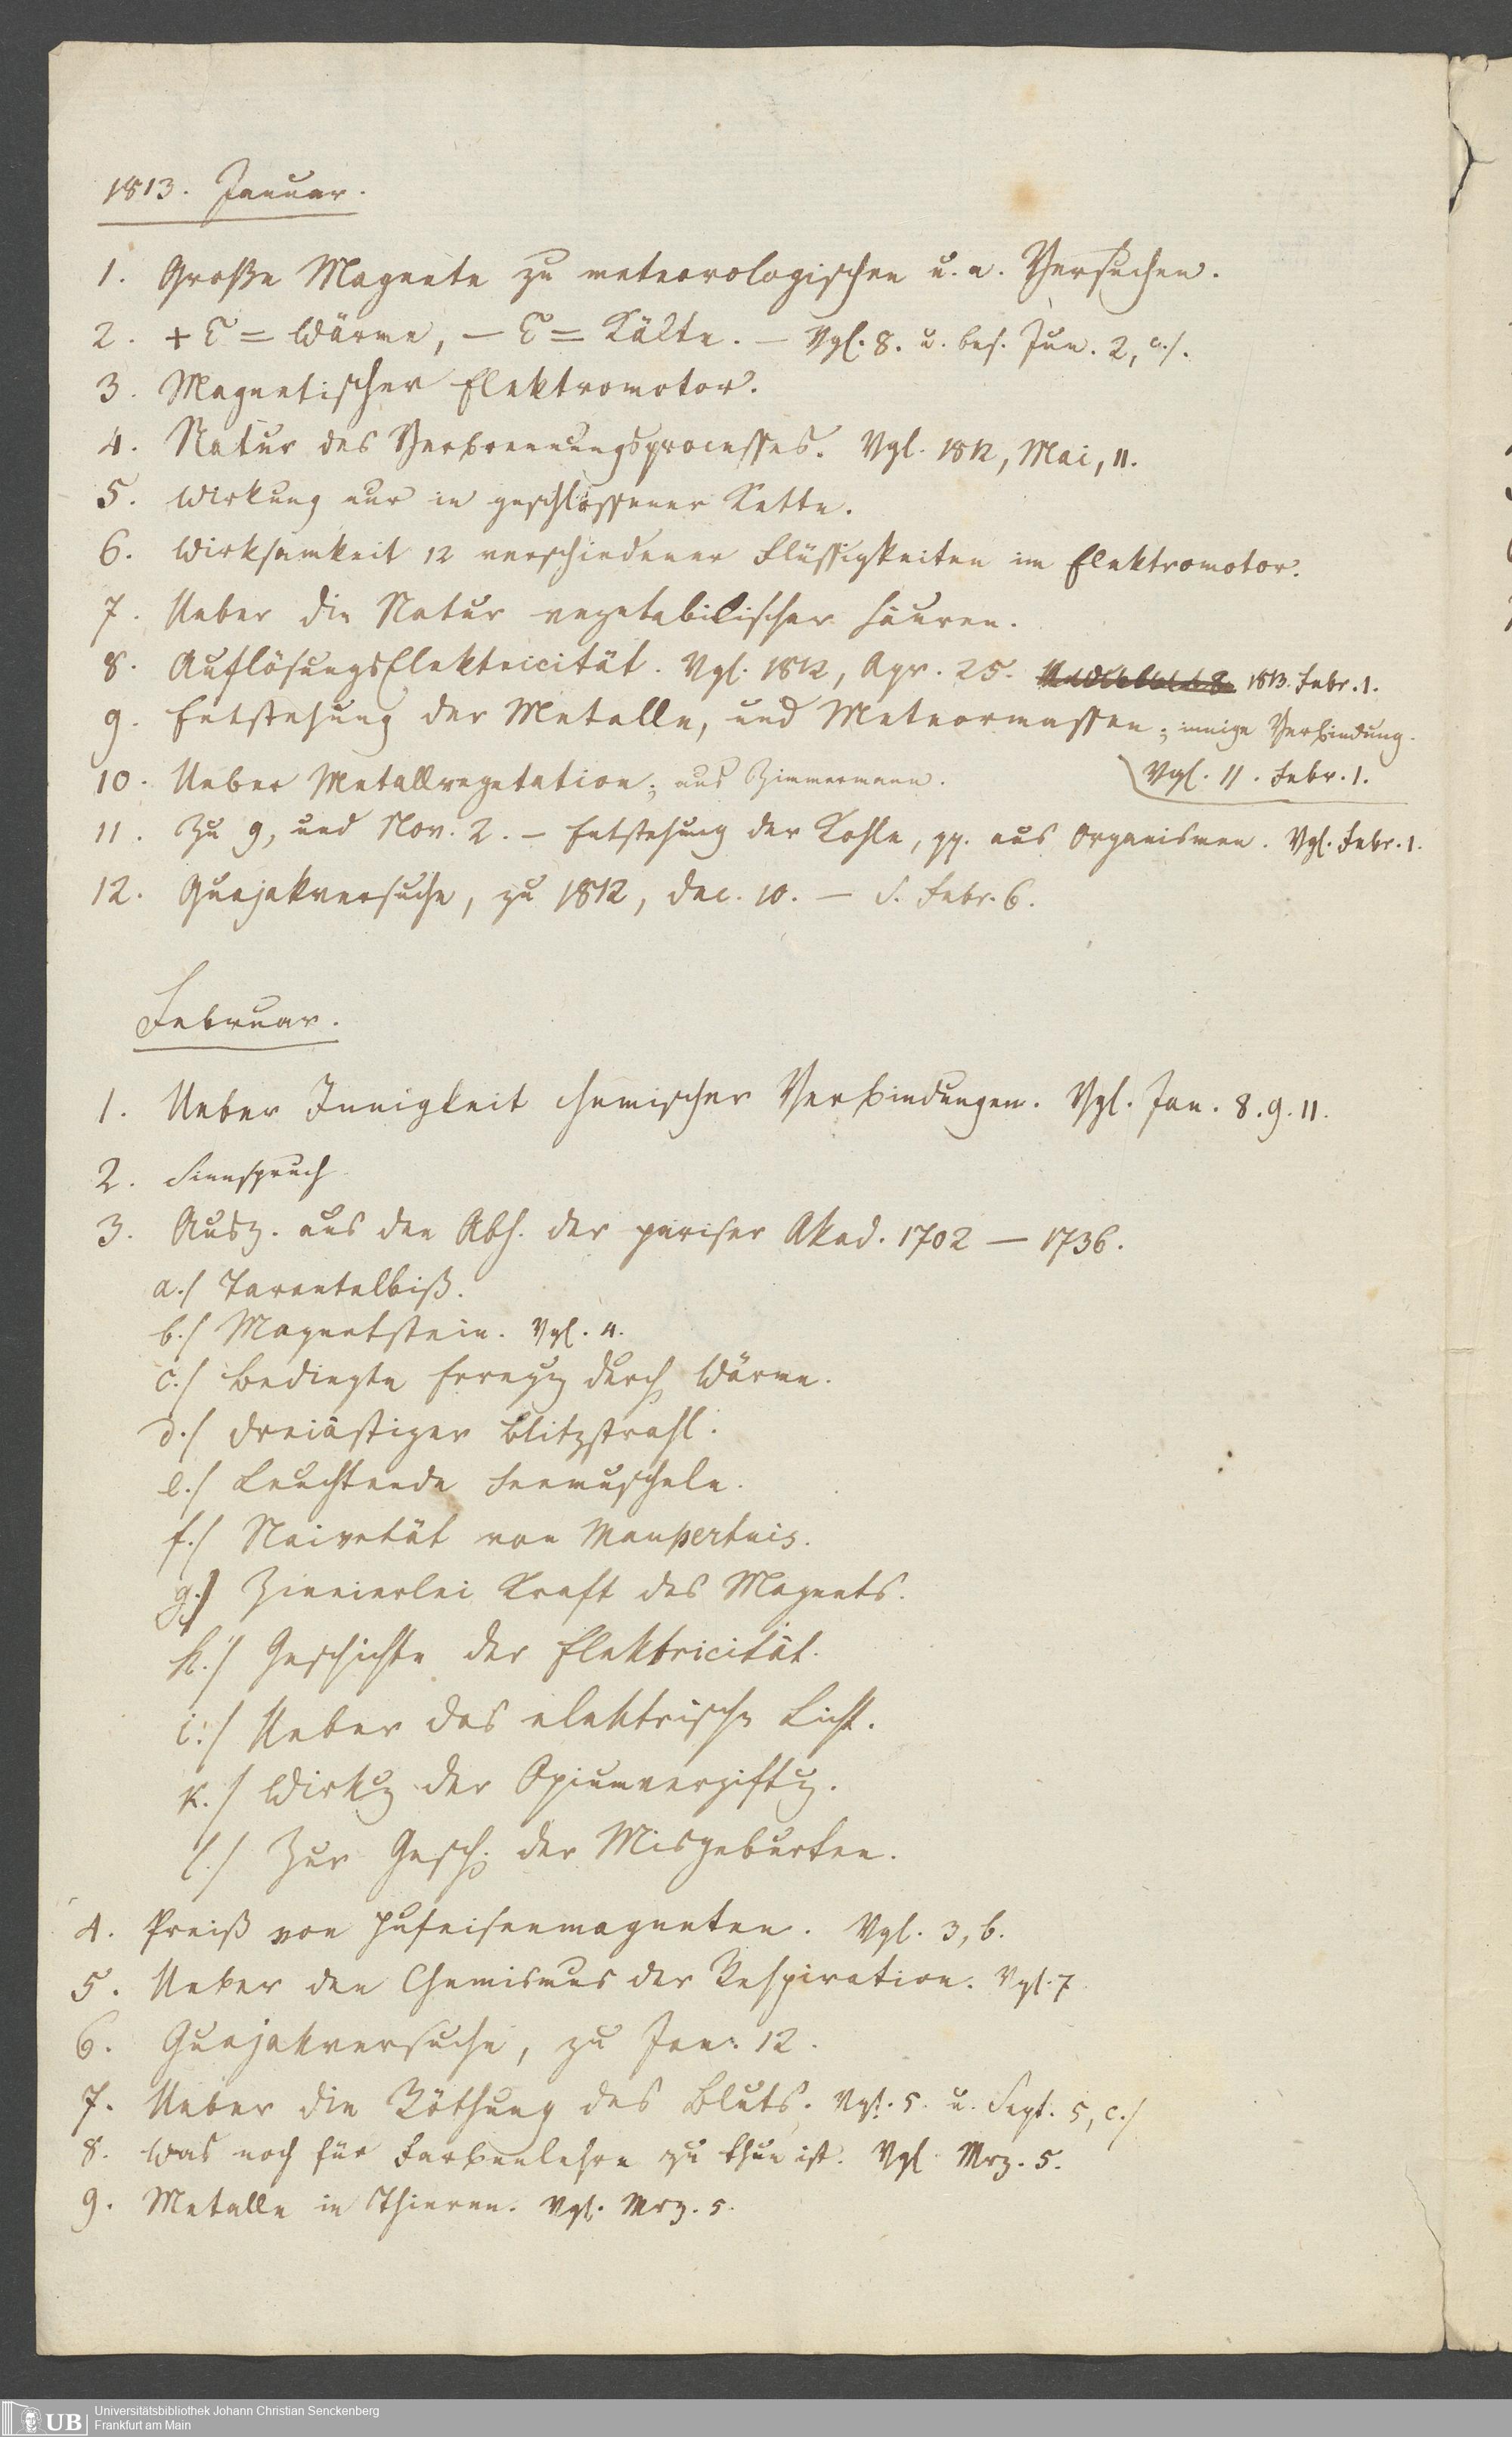 1813. Januar.
1. Große Magnete zu meteorologischen u. a. Versuchen.
2. + E = Wärme, — E = Kälte. — Vgl. 8. u. bes. Jun. 2, c./.
3. Magnetischer Elektromotor.
4. Natur des Verbrennungsprocesses. Vgl. 1812, Mai, 11.
5. Wirkung nur in geschlossener Kette.
6. Wirksamkeit 12 verschiedener Flüssigkeiten im Elektromotor.
7. Ueber die Natur vegetabilischer Säuren.
8. AuflösungsElektricität. Vgl. 1812, Apr. 25. 1813. Febr. 1.
9. Entstehung der Metalle, und Meteormassen; innige Verbindung.
Vgl. 11. Febr. 1.
10. Ueber Metallvegetation; aus Zimmermann.
11. Zu 9, und Nov. 2. — Entstehung der Kohle, pp. aus Organismen. Vgl. Febr. 1.
12. Guajakversuche, zu 1812, Dec. 10. — S. Febr. 6.
Februar.
1. Ueber Innigkeit chemischer Verbindungen. Vgl. Jan. 8. 9. 11.
2. Sinnspruch
3. Ausz. aus den Abh. der pariser Akad. 1702 — 1736.
a./ Tarantelbiß.
b./ Magnetstein. Vgl. 4.
c./ Bedingte Erregg durch Wärme.
d./ Dreiästiger Blitzstrahl.
e./ Leuchtende Seemuscheln.
f./ Naivetät von Maupertuis.
g./ Zweierlei Kraft des Magnets.
h./ Geschichte der Elektricität.
i./ Ueber das elektrische Licht.
k./ Wirkg der Opiumvergiftg.
l./ Zur Gesch. der Misgeburten.
4. Preiß von Hufeisenmagneten. Vgl. 3, b.
5. Ueber den Chemismus der Respiration. Vgl. 7
6. Guajakversuche, zu Jan. 12.
7. Ueber die Röthung des Bluts. Vgl. 5. u. Sept. 5, c./
8. Was noch für Farbenlehre zu thun ist. Vgl. Mrz. 5.
9. Metalle in Thieren. Vgl. Mrz. 5.
UB Universitätsbibliothek Johann Christian Senckenberg
Frankfurt am Main